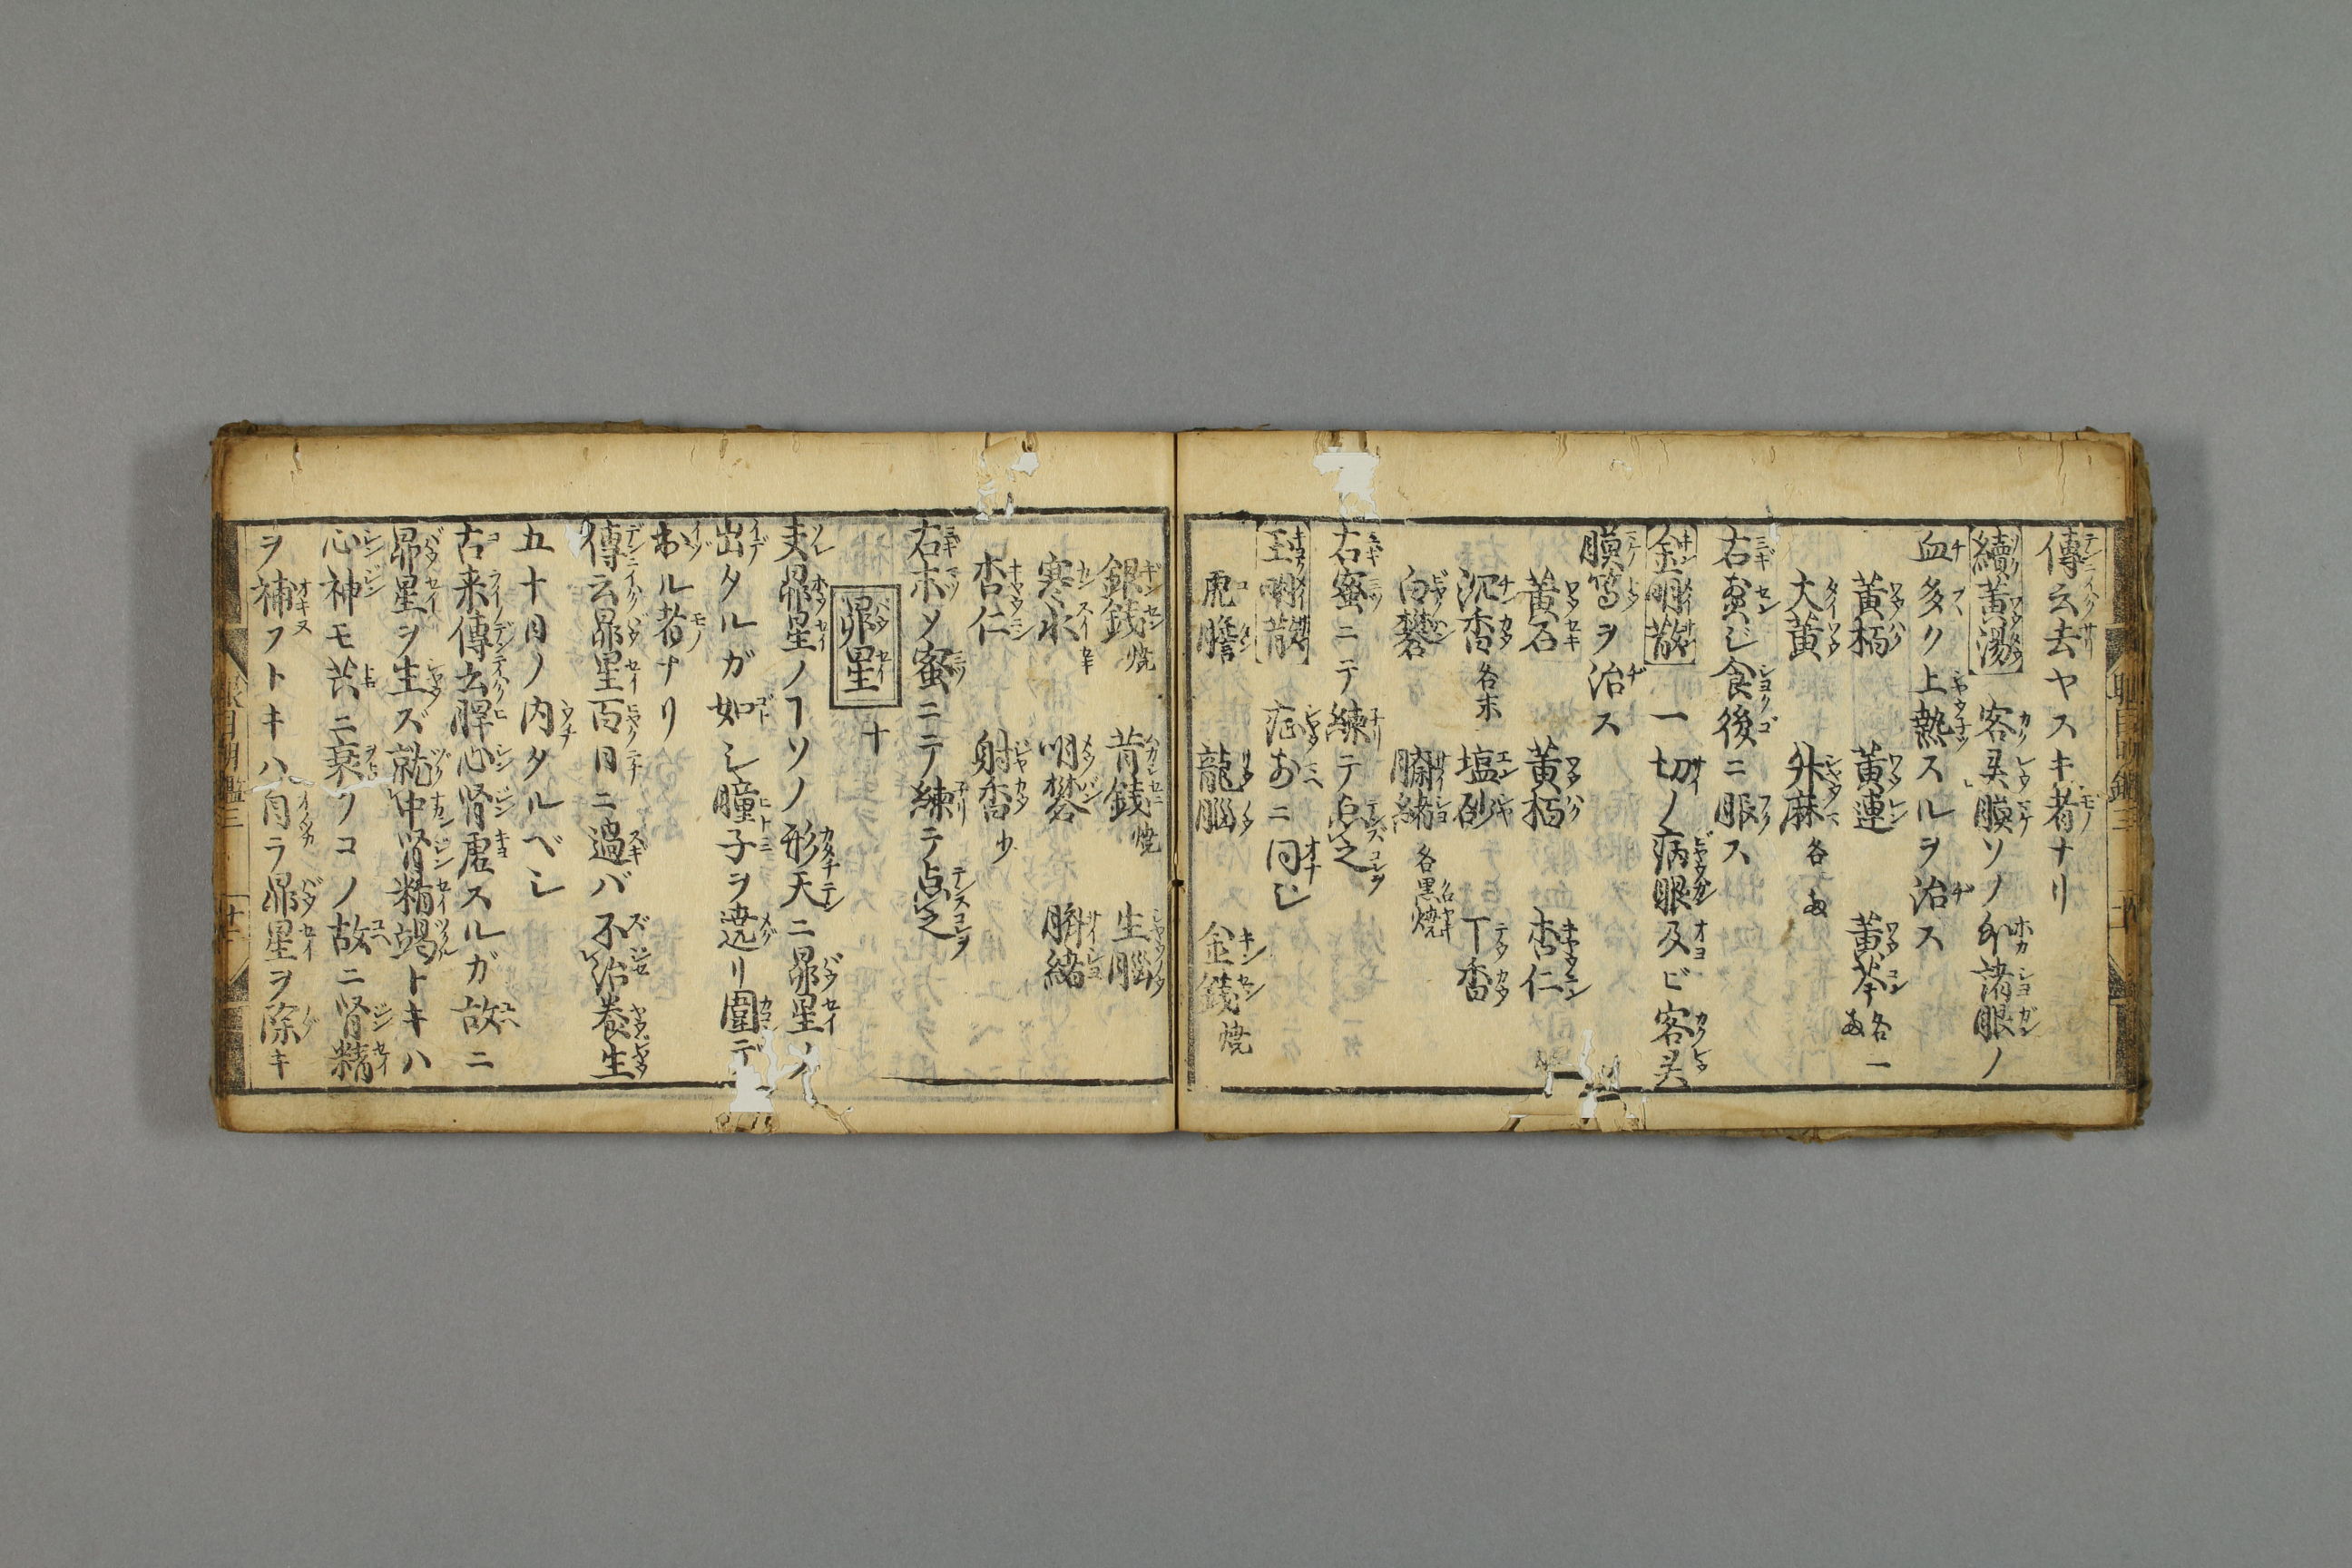 傳云去ヤスキ者ナリ
續黄湯 客熱膜ソノ外諸眼ノ
血多ク上熱スルヲ治ス
黄栢 黄連 黄芩 各一
大黄 升麻 各
右煎ジ食後ニ服ス
金明散 一切ノ病眼及ビ客
膜等ヲ治ス
黄石 黄栢 杏仁
沉香 各末 塩砂 丁香
白礬 臍緒 各黒焼
右蜜ニテ練テ点之
玉明散 症前ニ同シ
虎膽 龍脳 金錢 焼
銀錢 焼 青錢 焼 生脳
寒水 明礬 臍緒
杏仁 射香 少
右末ソ蜜ニテ練テ点之
昴星 十
夫昴星ノヿソノ形天ニ昴星ノ
出タルガ如シ瞳子ヲ遶リ圍デ
出ル者ナリ
傳云昴星百日ニ過バ不治養生
五十日ノ内タルベシ
古来傳云脾心腎虚スルガ故ニ
昴星ヲ生ズ就中腎精竭トキハ
心神モ共ニ衰フコノ故ニ腎精
ヲ補フトキハ自ラ昴星ヲ除キ